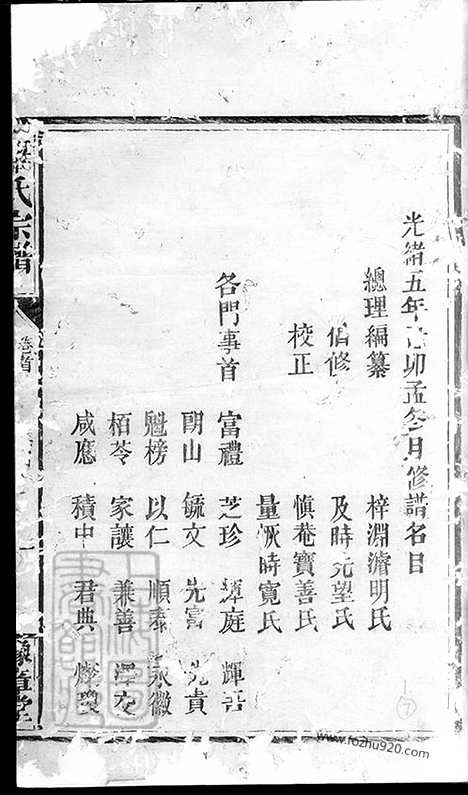 光緒五年己卯孟冬月修譜名目
總理編纂 梓淵濬明氏
佰修 及時元望氏
校正 慎菴寶善氏
量恢時寬氏
各門事首 富禮 芝珍 潭庭 輝吾
閉山 毓文 先富 先貴
魁榜 以仁 順泰 永徽
栢苓 家讓 兼善 澤文
咸應 積中 君典
氏宗譜
卷首
一
堂
7
www.fozhu920.com